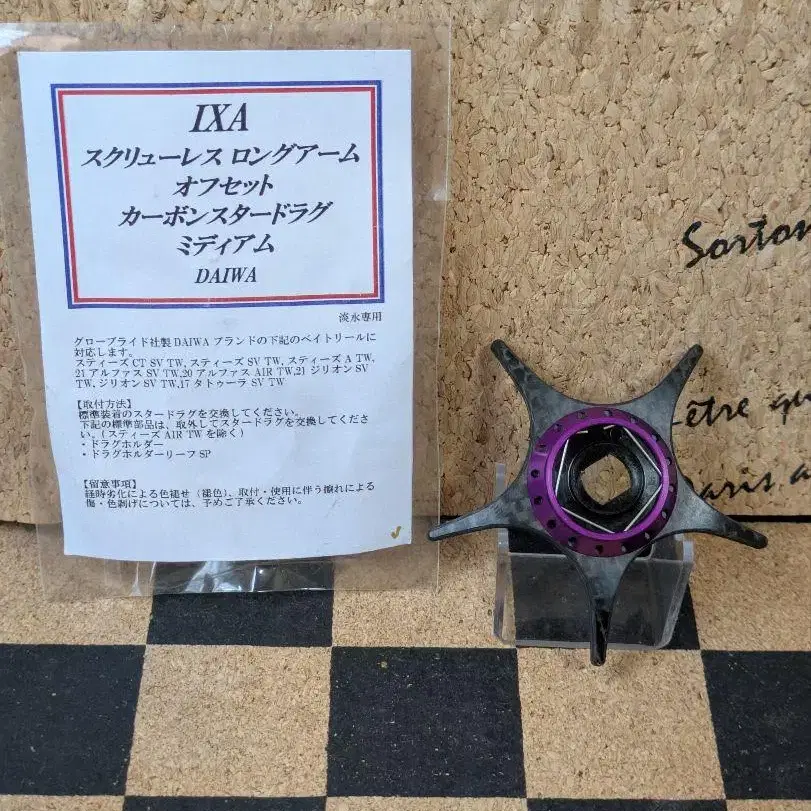 IXA
スクリューレス ロングアーム
オフセット
カーボンスタードラグ
ミディアム
DAIWA
淡水専用
グローブライド社製 DAIWA ブランドの下記のベイトリールに
対応します。
スティーズ CT SV TW, スティーズ SV TW, スティーズ A TW,
21 アルファス SV TW,20 アルファス AIR TW,21 ジリオン SV
TW, ジリオン SV TW,17 タトゥーラ SV TW
【取付方法】
標準装着のスタードラグを交換してください。
下記の標準部品は、取外してスタードラグを交換してくださ
い。( スティーズ AIR TW を除く )
・ドラグホルダー
・ドラグホルダーリーフ SP
【留意事項】
経時劣化による色褪せ（褪色）、取付・使用に伴う擦れによる
傷・色剥げについては、予めご了承ください。
être qu
Paris a